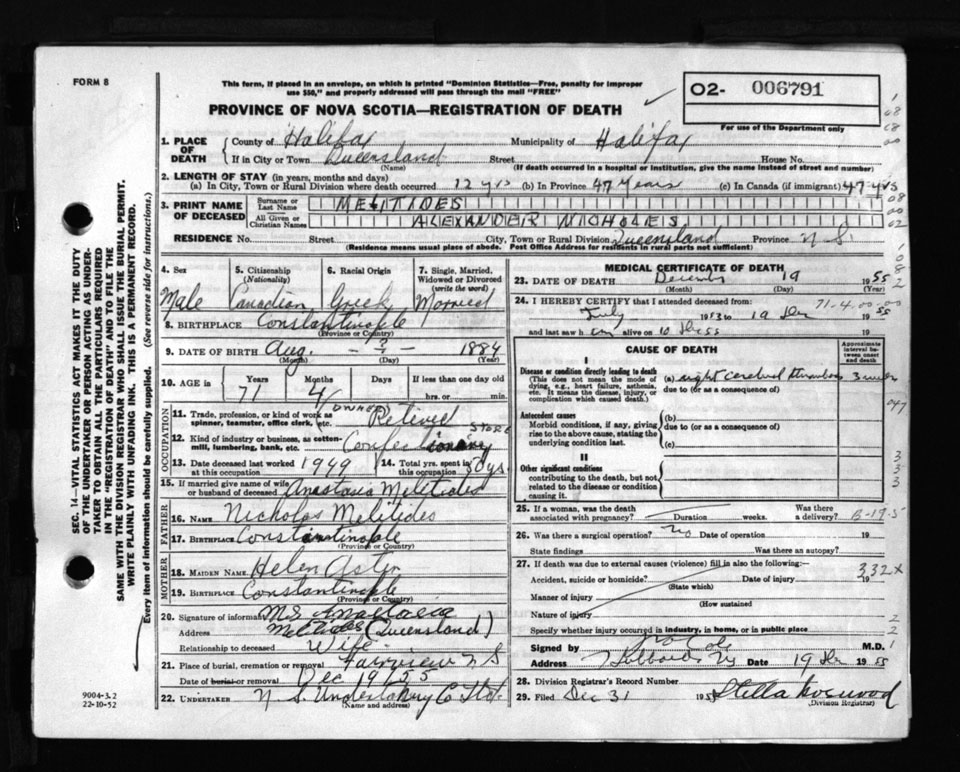 FORM 8
This form, if placed in an envelope, on which is printed "Dominion Statistics—Free, penalty for improper
use $50," and properly addressed will pass through the mail "FREE"
PROVINCE OF NOVA SCOTIA—REGISTRATION OF DEATH
02- 006791
For use of the Department only
1. PLACE OF DEATH County of Halifax Municipality of Halifax
If in City or Town Queensland Street House No.
(Name) (If death occurred in a hospital or institution, give its name instead of street and number)
2. LENGTH OF STAY (in years, months and days)
(a) In City, Town or Rural Division where death occurred 12 yrs (b) In Province 47 Years (c) In Canada (if immigrant) 47 yrs
3. PRINT NAME OF DECEASED Surname or Last Name MELITIDES
All Given or Christian Names ALEXANDER NICHOLES
RESIDENCE No. Street City, Town or Rural Division Queensland Province N.S.
(Residence means usual place of abode. Post Office Address for residents in rural parts not sufficient)
4. Sex Male
5. Citizenship (Nationality) Canadian
6. Racial Origin Greek
7. Single, Married, Widowed or Divorced (write the word) Married
8. BIRTHPLACE Constantinople
(Province or Country)
9. DATE OF BIRTH Aug. - ? - 1884
(Month) (Day) (Year)
10. AGE in Years Months Days If less than one day old
71 4 hrs. or min.
OCCUPATION
11. Trade, profession, or kind of work as spinner, teamster, office clerk, etc. OWNER Retired
12. Kind of industry or business, as cotton-mill, lumbering, bank, etc. Confectionary STORE
13. Date deceased last worked at this occupation 1949
14. Total yrs. spent in this occupation 30 yrs.
15. If married give name of wife or husband of deceased Anastasia Melitides
FATHER
16. NAME Nicholas Melitides
17. BIRTHPLACE Constantinople
(Province or Country)
MOTHER
18. MAIDEN NAME Helen Aster
19. BIRTHPLACE Constantinople
(Province or Country)
20. Signature of informant
Address Melitides (Queensland)
Relationship to deceased Wife
21. Place of burial, cremation or removal Fairview N S
Date of burial or removal Dec 19/55
22. UNDERTAKER N. S. Undertaking Co Ltd.
(Name and address)
MEDICAL CERTIFICATE OF DEATH
23. DATE OF DEATH December 19 1955
(Month) (Day) (Year)
24. I HEREBY CERTIFY that I attended deceased from:
71-4.00-00
July 1953 to 19 Dec 1955
and last saw h im alive on 19
CAUSE OF DEATH
Approximate interval between onset and death
I
Disease or condition directly leading to death
(This does not mean the mode of dying, e.g., heart failure, asthenia, etc. It means the disease, injury, or complication which caused death.)
(a) right cerebral thrombosis
due to (or as a consequence of)
Antecedent causes
Morbid conditions, if any, giving rise to the above cause, stating the underlying condition last.
(b)
due to (or as a consequence of)
(c)
II
Other significant conditions
contributing to the death, but not related to the disease or condition causing it.
25. If a woman, was the death associated with pregnancy? Duration weeks. Was there a delivery? B-19.5
26. Was there a surgical operation? no Date of operation 19
State findings Was there an autopsy?
27. If death was due to external causes (violence) fill in also the following:—
332x
Accident, suicide or homicide? Date of injury 19
(State which)
Manner of injury
(How sustained
Nature of injury
Specify whether injury occurred in industry, in home, or in public place
Signed by Cole M.D.
Address Hubbards NS Date 19 Dec 1955
28. Division Registrar's Record Number
29. Filed Dec 31 195 Stella
(Division Registrar)
SEC. 14—VITAL STATISTICS ACT MAKES IT THE DUTY
OF THE UNDERTAKER OR PERSON ACTING AS UNDER-
TAKER TO OBTAIN ALL THE PARTICULARS REQUIRED
IN THE "REGISTRATION OF DEATH" AND TO FILE THE
SAME WITH THE DIVISION REGISTRAR WHO SHALL ISSUE THE BURIAL PERMIT.
WRITE PLAINLY WITH UNFADING INK. THIS IS A PERMANENT RECORD.
Every item of information should be carefully supplied. (See reverse side for instructions.)
9004-3.2
22-10-52